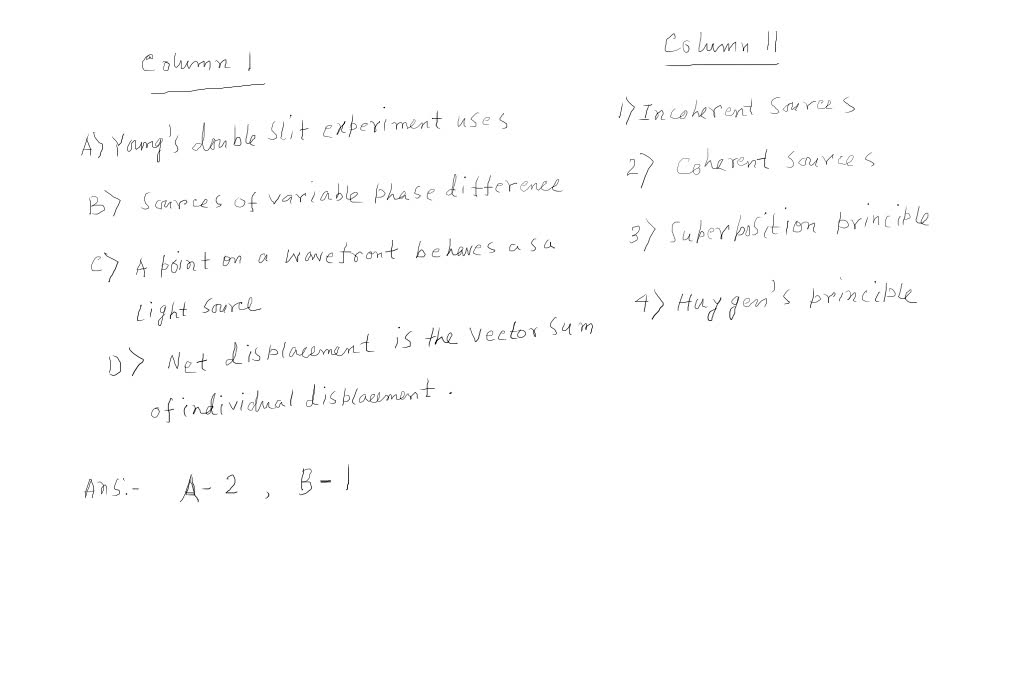 Column I
A) Young's double slit experiment uses
B) Sources of variable phase difference
C) A point on a wavefront behaves as a
Light source
D) Net displacement is the vector sum
of individual displacement.
Column II
1) Incoherent Sources
2) Coherent Sources
3) Superposition principle
4) Huygen's principle
Ans:- A-2, B-1